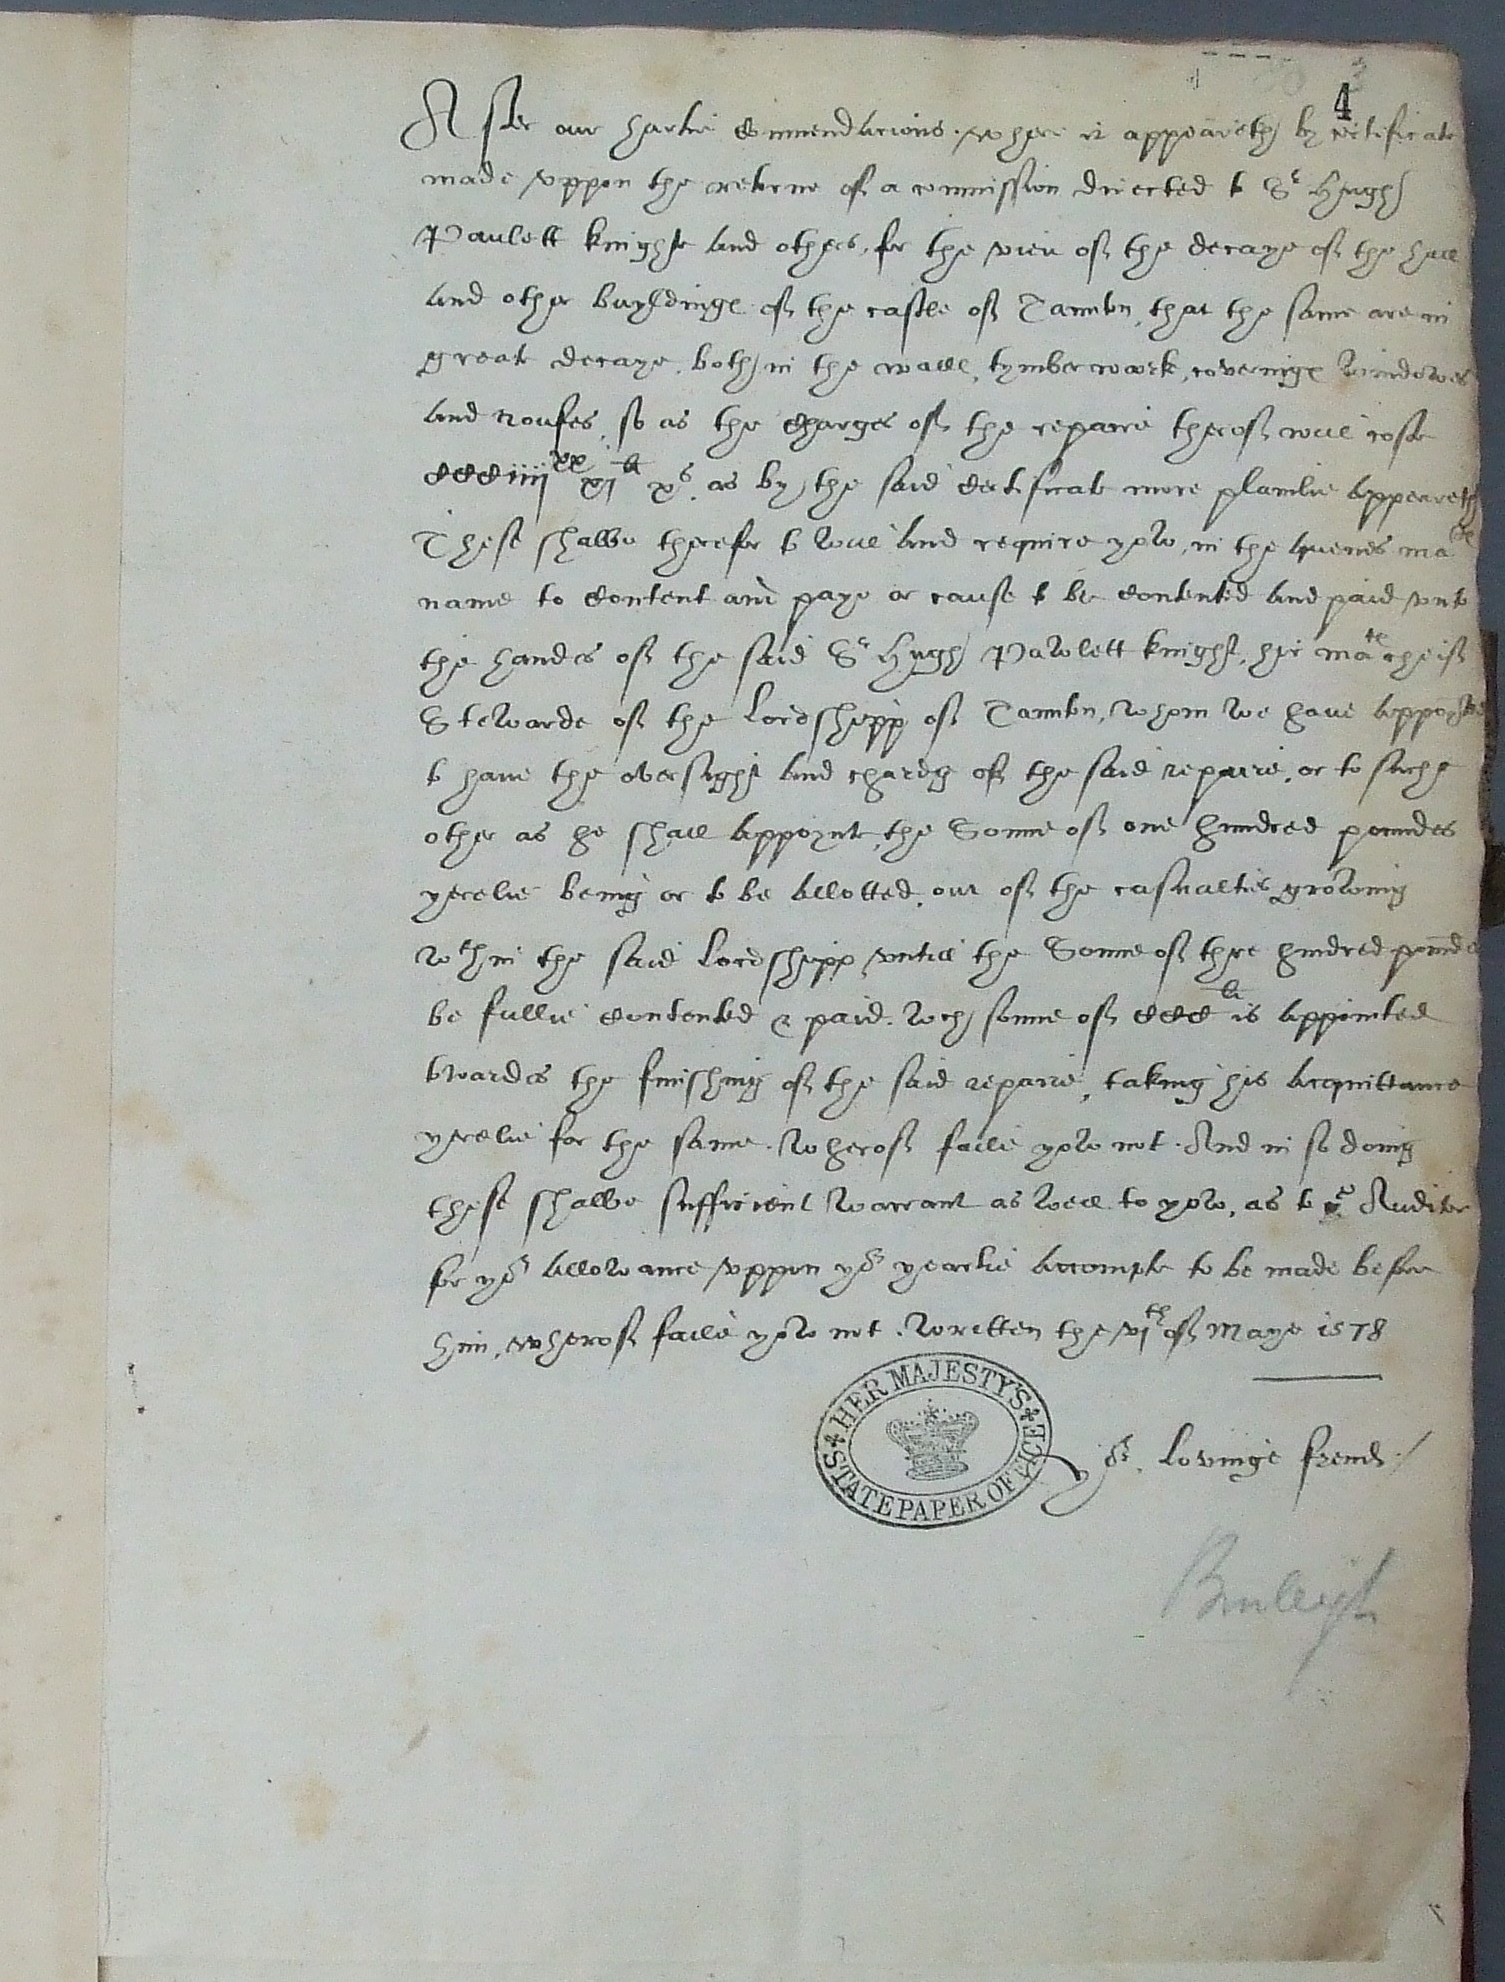 4
After our hartie Commendacions. where it appeareth by certificate
made vppon the retorne of a commission directed to Sr Hugh
Paulett knight and others, for the view of the decaye of the hall
and other buyldinge of the castle of Taunton, that the same are in
great decaye, both in the walle, tymberwork, coveringe windowes
and roufes, so as the Charges of the repaire therof will coste
CCCiiijxx xjli xs. as by the said Certificate more plainlie appeareth
These shalbe therefor to will and require yow, in the quenes mates
name to Content and paye or cause to be Contented and paid vnto
the handes of the said Sr Hugh Pawlett knight, her mates cheif
Stewarde of the Lordshipp of Taunton, whom we have appoynted
to have the oversight and chardg of the said repaire, or to suche
other as he shall appoynte, the Somme of one hundred poundes
yerelie being or to be allotted, out of the casualties growing
wthin the said Lordshipp, vntill the Somme of thre hundred pounde
be fullie Contented & paid. wch somme of CCCli is appointed
towardes the finishing of the said repaire, taking his acquittance
yerelie for the same. wherof faile yow not. And in so doing
these shalbe sufficient warrant as well to yow, as to ye Auditor
for yor allowance vppon yor yearlie accompte to be made before
him, wherof faile yow not. written the vjth of Maye 1578
yor. lovinge frends
HER MAJESTY'S STATE PAPER OFFICE
Burleigh